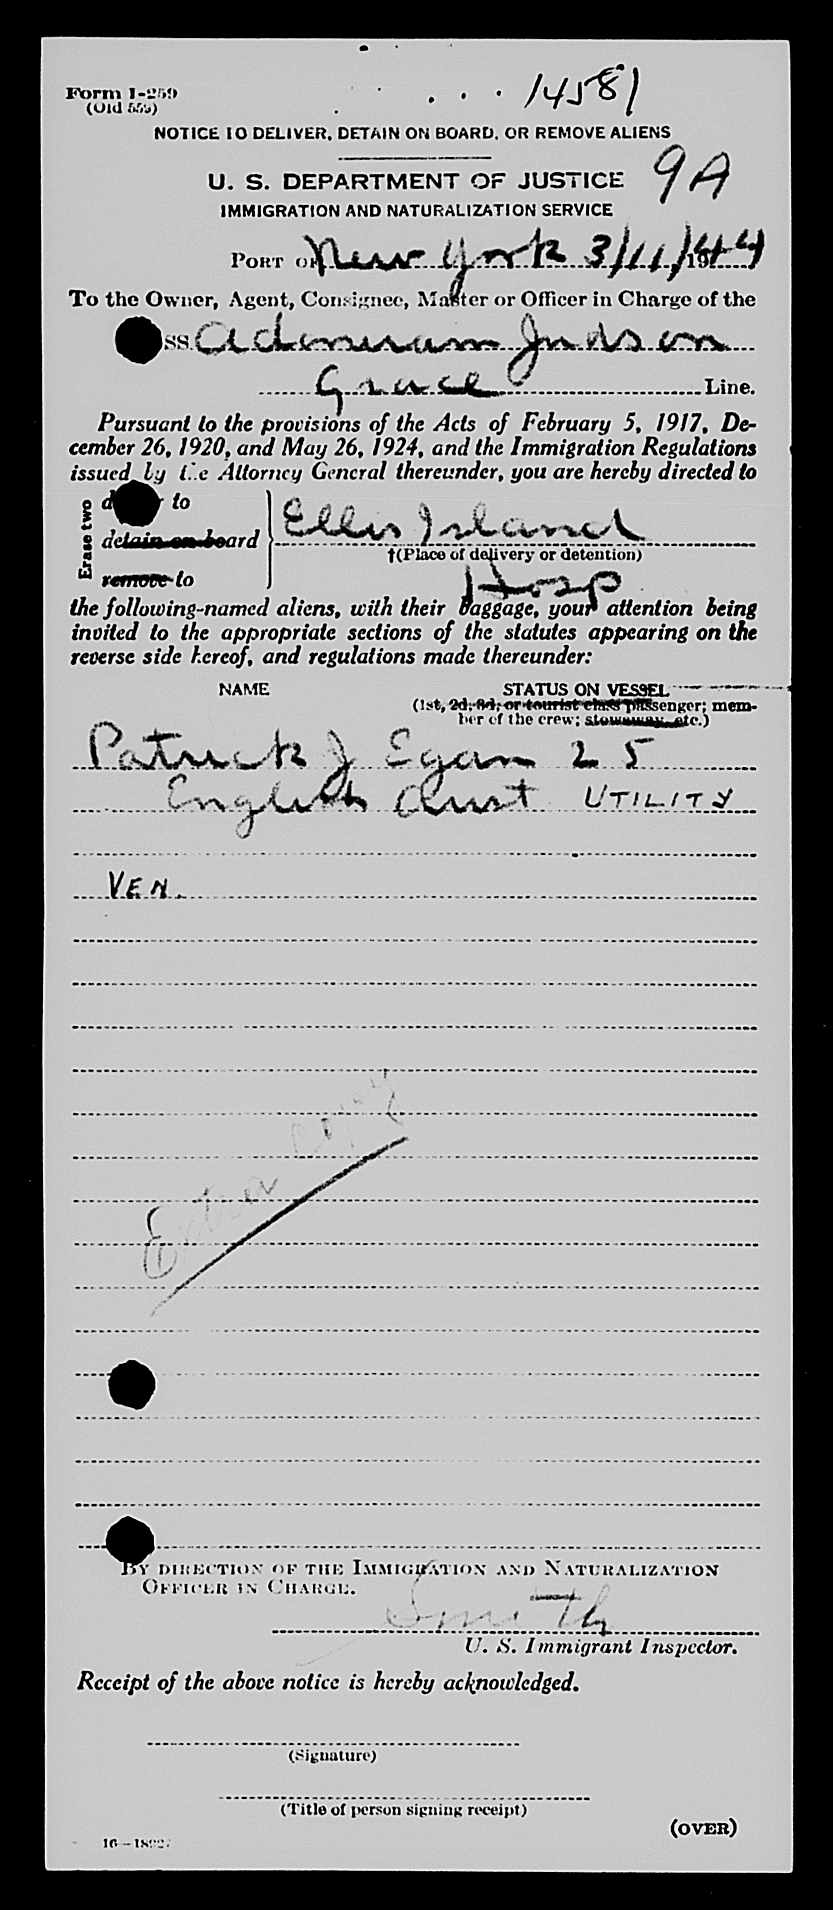 Form I-259
(Old 559)
14581
NOTICE TO DELIVER, DETAIN ON BOARD, OR REMOVE ALIENS
9A
U. S. DEPARTMENT OF JUSTICE
IMMIGRATION AND NATURALIZATION SERVICE
PORT OF New York 3/11/1944
To the Owner, Agent, Consignee, Master or Officer in Charge of the
SS. Adoniram Judson
Grace Line.
Pursuant to the provisions of the Acts of February 5, 1917, De-
cember 26, 1920, and May 26, 1924, and the Immigration Regulations
issued by the Attorney General thereunder, you are hereby directed to
Erase two
to
detain on board
remove to
Ellis Island
†(Place of delivery or detention)
Hosp
the following-named aliens, with their baggage, your attention being
invited to the appropriate sections of the statutes appearing on the
reverse side hereof, and regulations made thereunder:
NAME STATUS ON VESSEL
(1st, 2d, 3d, or tourist class passenger; mem-
ber of the crew; stowaway, etc.)
Patrick J Egan 25
English Aust UTILITY
VEN.
Extra copy
BY DIRECTION OF THE IMMIGRATION AND NATURALIZATION
OFFICER IN CHARGE.
Smith
U. S. Immigrant Inspector.
Receipt of the above notice is hereby acknowledged.
(Signature)
(Title of person signing receipt)
(OVER)